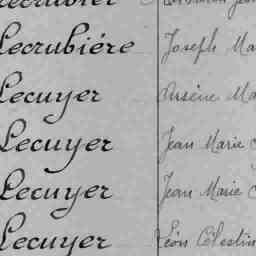 Lecrubière Joseph Ma
Lecuyer Arsène Ma
Lecuyer Jean Marie
Lecuyer Jean Marie
Lecuyer Léon Célestin